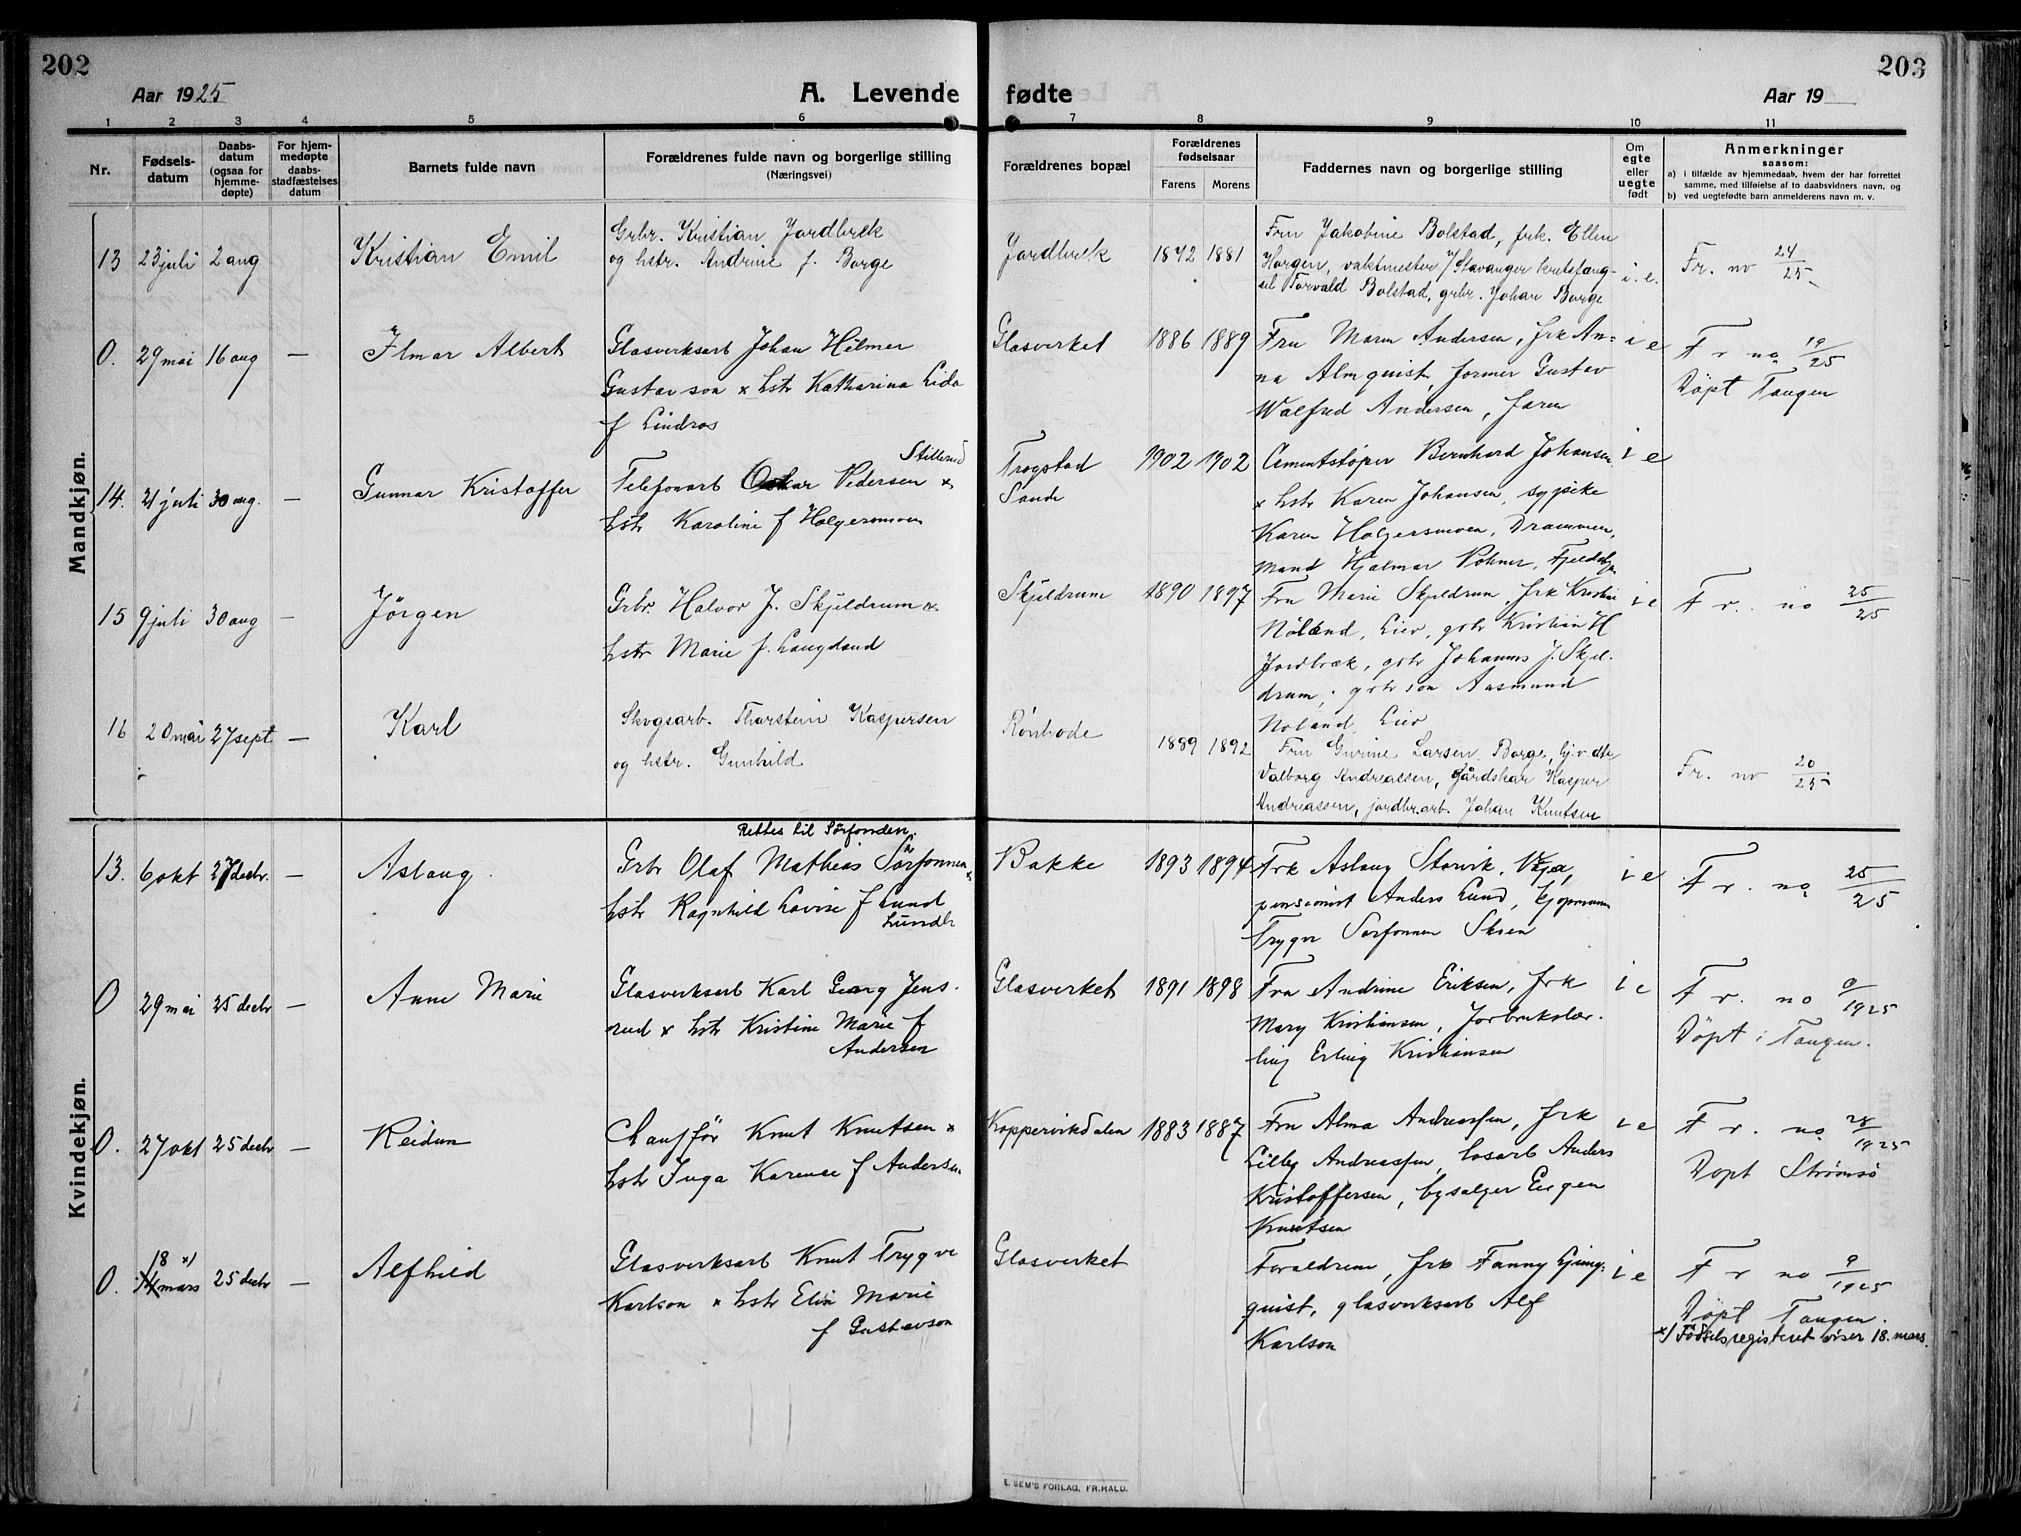 202
Aar 1925
A. Levende
fødte
Aar 19
203
1 2 3 4 5 6 7 8 9 10 11
Nr.
Fødsels-
datum
Daabs-
datum
(ogsaa for
hjemme-
døpte)
For hjem-
medøpte
daabs-
stadfæstelses
datum
Barnets fulde navn
Forældrenes fulde navn og borgerlige stilling
(Næringsvei)
Forældrenes bopæl
Forældrenes
fødselsaar
Farens Morens
Faddernes navn og borgerlige stilling
Om
egte
eller
uegte
født
Anmerkninger
saasom:
a) i tilfælde av hjemmedaab, hvem der har forrettet
samme, med tilføielse af to daabsvidners navn, og
b) ved uegtefødte barn anmelderens navn m. v.
Mandkjøn.
13 23 juli 2 aug
Kristian Emil
Grbr. Kristian Jordbrek
og hstr. Andrine f. Borge
Jordbrek
1872 1881
Fru Jakobine Bolstad, frk. Ellen
Horgen, vaktmester v/ Stavanger kretsfæng-
sel Torvald Bolstad, grbr. Johan Borge
i. e.
Fr. no 24/25
0. 29 mai 16 aug —
Ilmar Albert
Glasverksarb Johan Hilmer
Gustavson x hstr Katharina Lida
f Lindros
Glasverket
1886 1889
Fru Maren Andersen, frk An-
na Almquist, former Gustav
Walfred Andersen, faren
i e
Fr no 19/25
Döpt Tangen
14. 21 juli 30 aug. —
Gunnar Kristoffer
Stillerud
Telefonarb Oskar Pedersen x
hstr Karoline f Holgersmoen
Trogstad
Sande
1902 1902
Cementstöper Bernhard Johansen
x hstr Karen Johansen, sypike
Karen Holgersmoen, Drammen,
mand Hjalmar
i e
15 9 juli 30 aug —
Jörgen
Grbr. Halvor J. Skjeldrum x
hstr Marie f. Langdand
Skjeldrum
1890 1897
Fru Marie Skjeldrum, frk Kristine
Nöland, Lier, gbr Kristian H
Jordbræk, gbr Johannes J. Skjel-
drum, gbr son Aasmund
Noland, Lier
i e
Fr. no 25/25
16 20 mai 27 sept —
Karl
Skogsarb. Thorstein Kaspersen
og hstr. Gunhild
Rönhode
1889 1892
Fru Gurine Larsen Borge,
Valborg Andreassen, Gårdskar Kasper
Andreassen, jordbr.arb. Johan Knutsen
Fr. no 20/25
Kvindekjøn.
13. 6 okt 27 decbr. —
Aslaug
Rettes til Sörfonden.
Grbr Olaf Mathias Sørfonnen
x
hstr Ragnhild Lovise f Lund
Lunde
Bakke
1893 1894
Frk Aslaug Storvik,
pensionist Anders Lund, kjöpmann
Trygve Sørfonnen Skien
i e
Fr. no 25/25
0 29 mai 25 decbr —
Anne Marie
Glasverksarb Karl Georg Jens-
rud x hstr Kristine Marie f
Andersen
Glasverket
1891 1898
Fru Andrine Eriksen, frk
Mary Kristiansen, Jorbrukslær-
ling Erling Kristiansen
i e
Fr. no 9/1925
Döpt i Tangen.
0. 27 okt 25 decbr —
Reidun
Chauffør Knut Knutsen x
hstr Inga Karense f Andersen
Koppervikdalen
1883 1887
Fru Alma Andreassen, frk
Lilly Andreassen, losarb Anders
Kristoffersen, bysalger Eugen
Knutsen
i e
Fr. no 28/1925
Döpt Strömsö
0. 18 x)
14 mars 25 decbr —
Alfhild
Glasverksarb Knut Trygve
Karlson x hstr Elin Marie
f Gustavson
Glasverket
Foraldrene, frk Fanny Ljung-
quist, glasverksarb Alf
Karlson
i e
Fr no 9/1925
Döpt Tangen.
x) Fødselsregisteret viser 18. mars.
E. SEM'S FORLAG, FR.HALD.